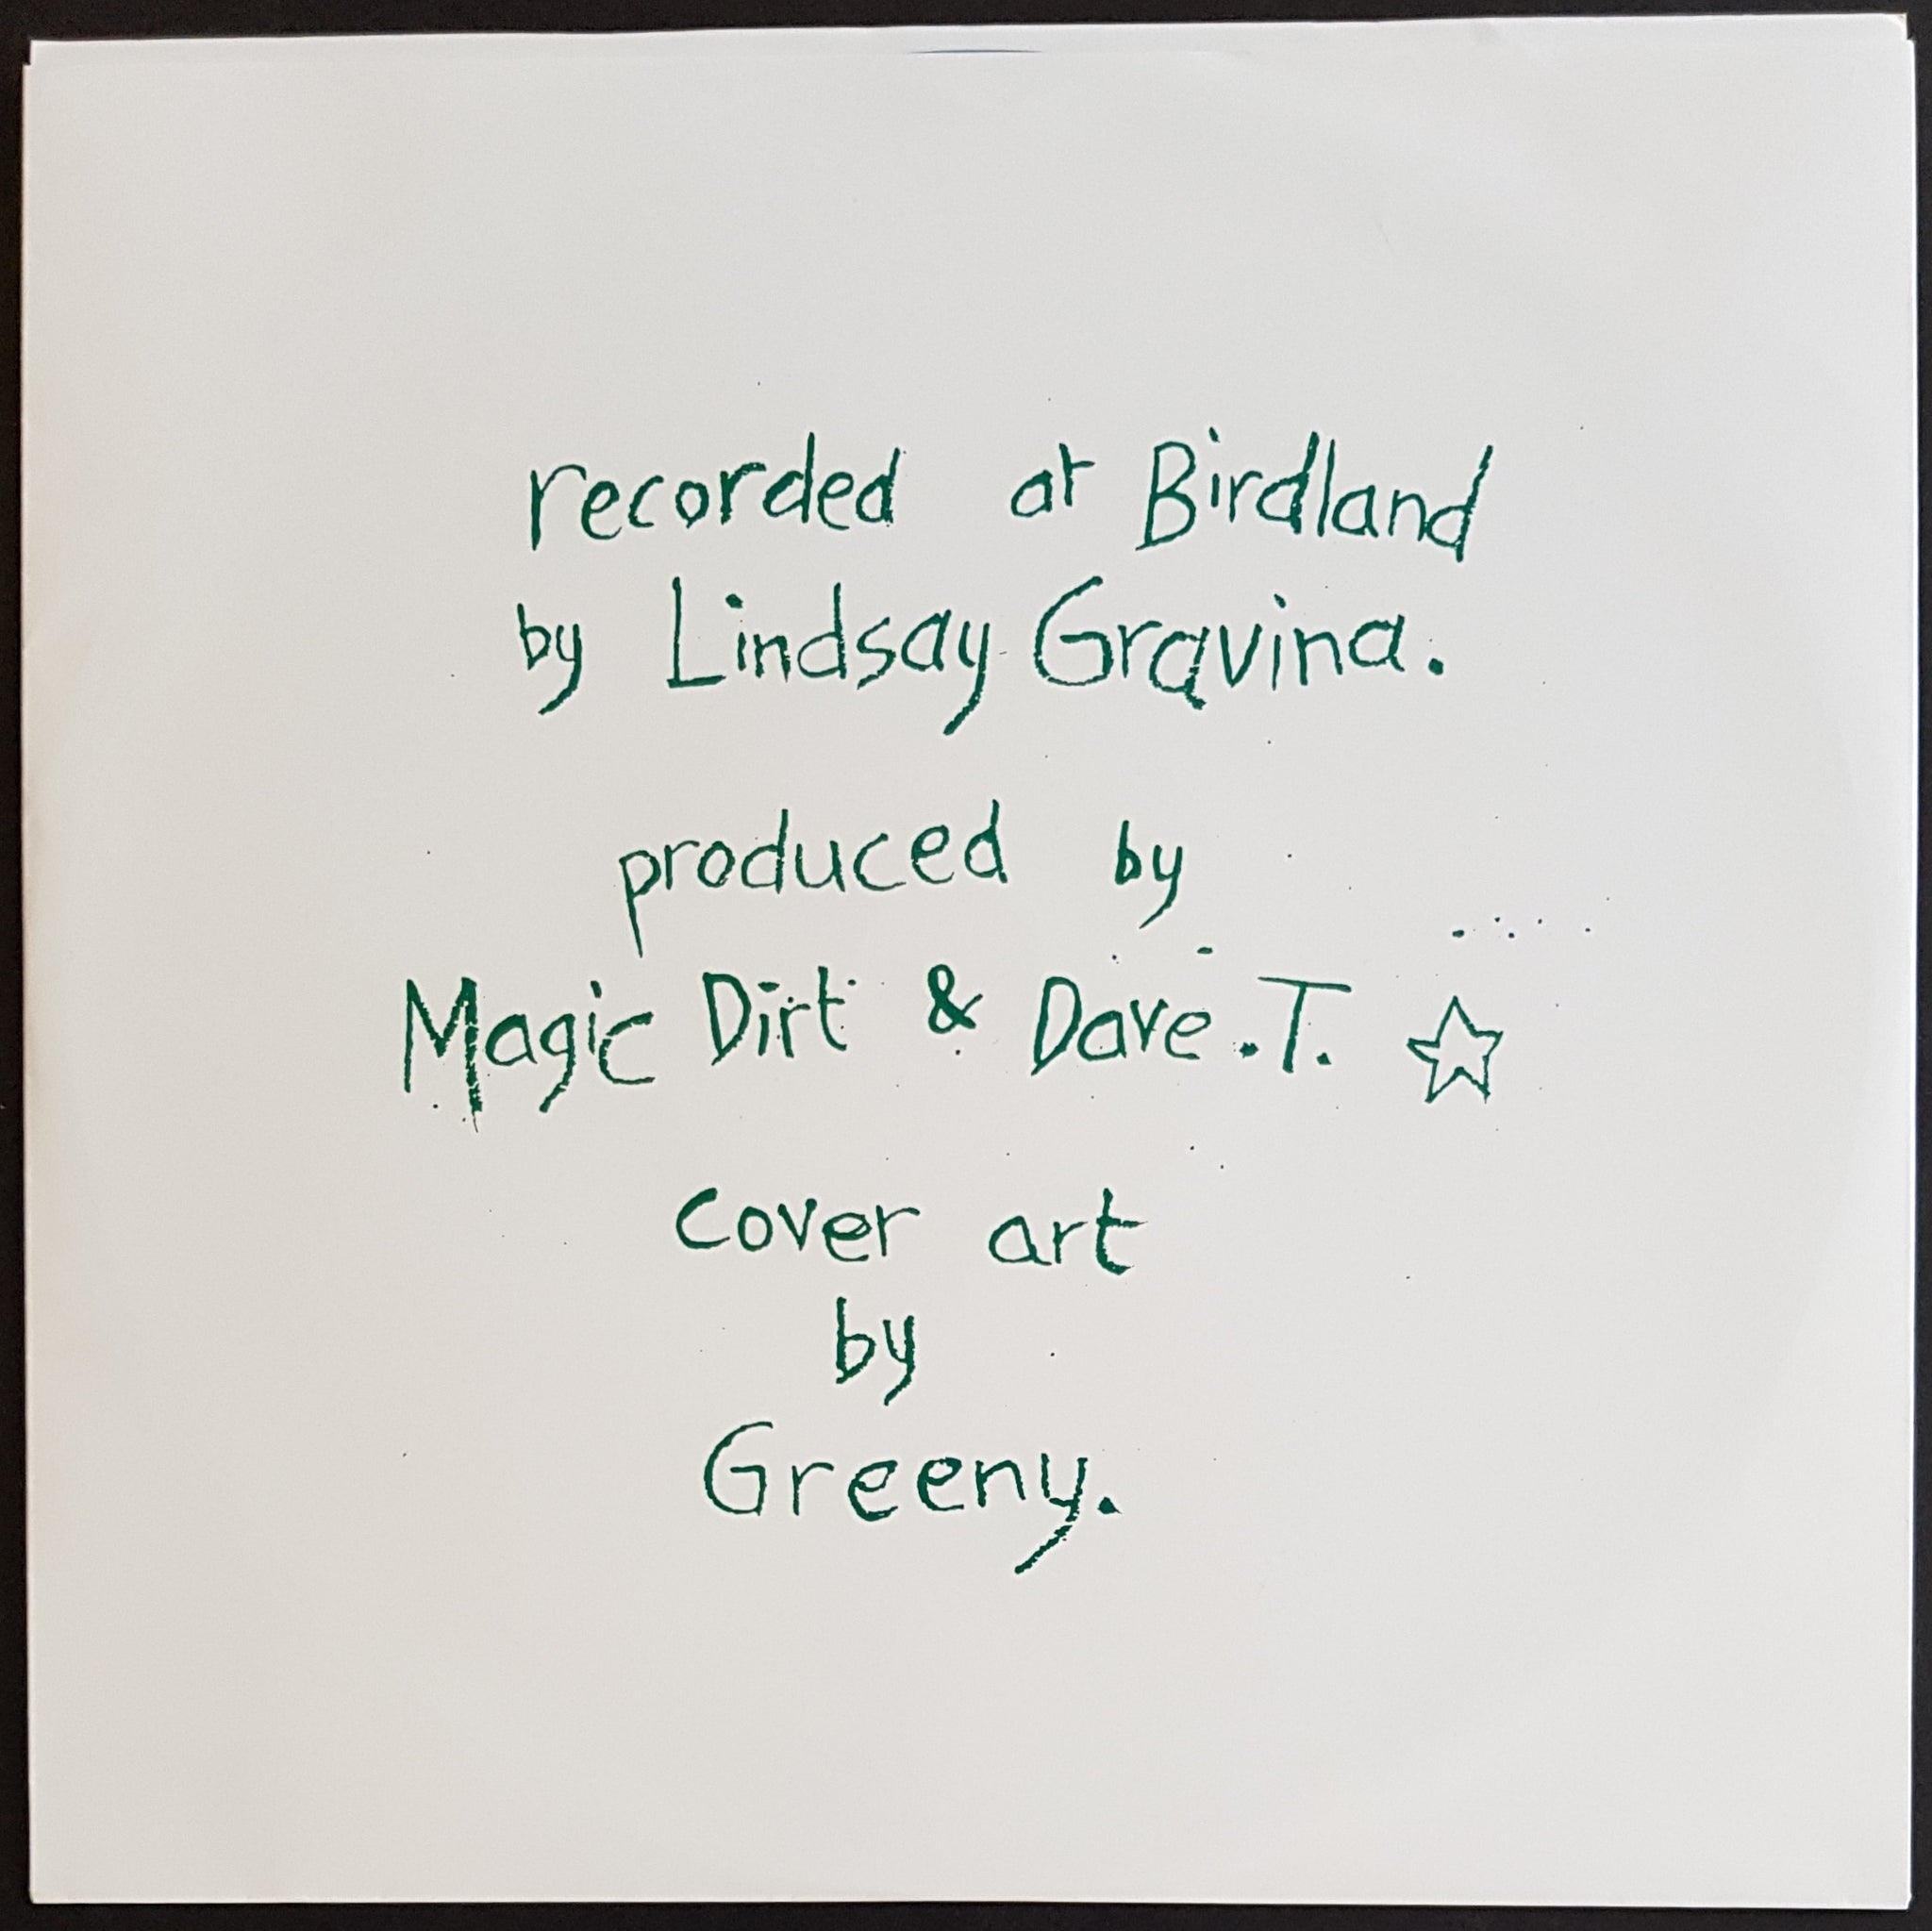 recorded at Birdland
by Lindsay Gravina.
produced by
Magic Dirt & Dave .T.
cover art
by
Greeny.